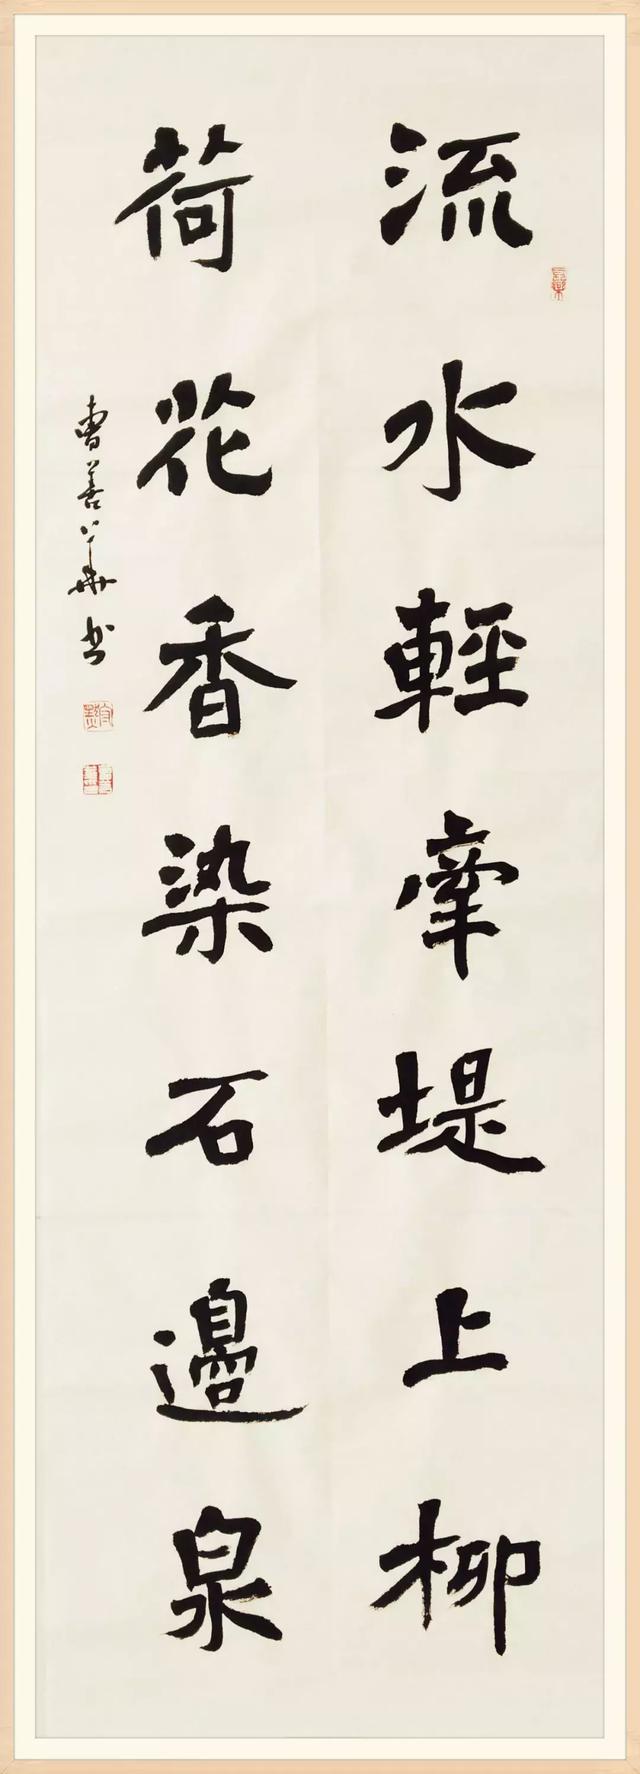 流水輕牽堤上柳
荷花香染石邊泉
曹善華書